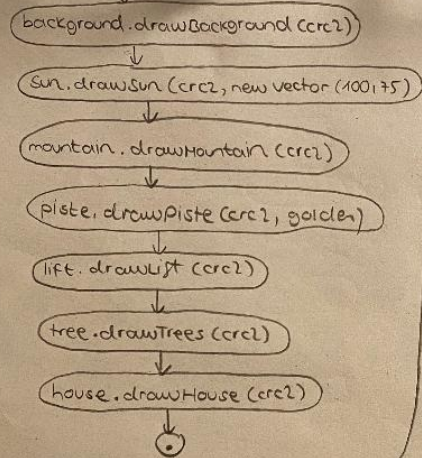 background.drawBackground (crc2)
sun.drawSun (crc2, new vector (100,75)
mountain.drawMountain (crc2)
piste.drawPiste (crc2, golden)
lift.drawLift (crc2)
tree.drawTrees (crc2)
house.drawHouse (crc2)